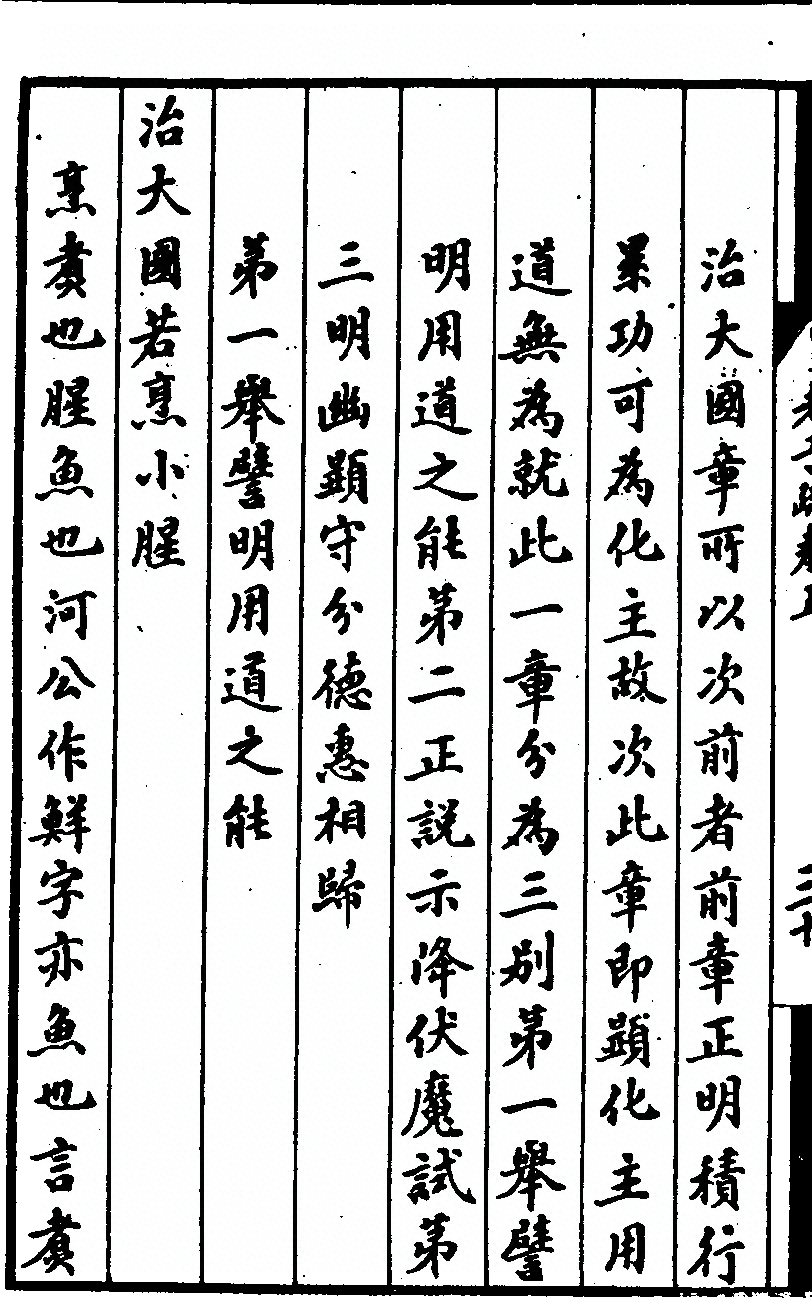 治大國章所以次前者前章正明積行
累功可為化主故次此章即顯化主用
道無為就此一章分為三別第一舉譬
明用道之能第二正說示降伏魔試第
三明幽顯守分德惠相歸
第一舉譬明用道之能
治大國若烹小腥
烹煑也腥魚也河公作鮮字亦魚也言煑